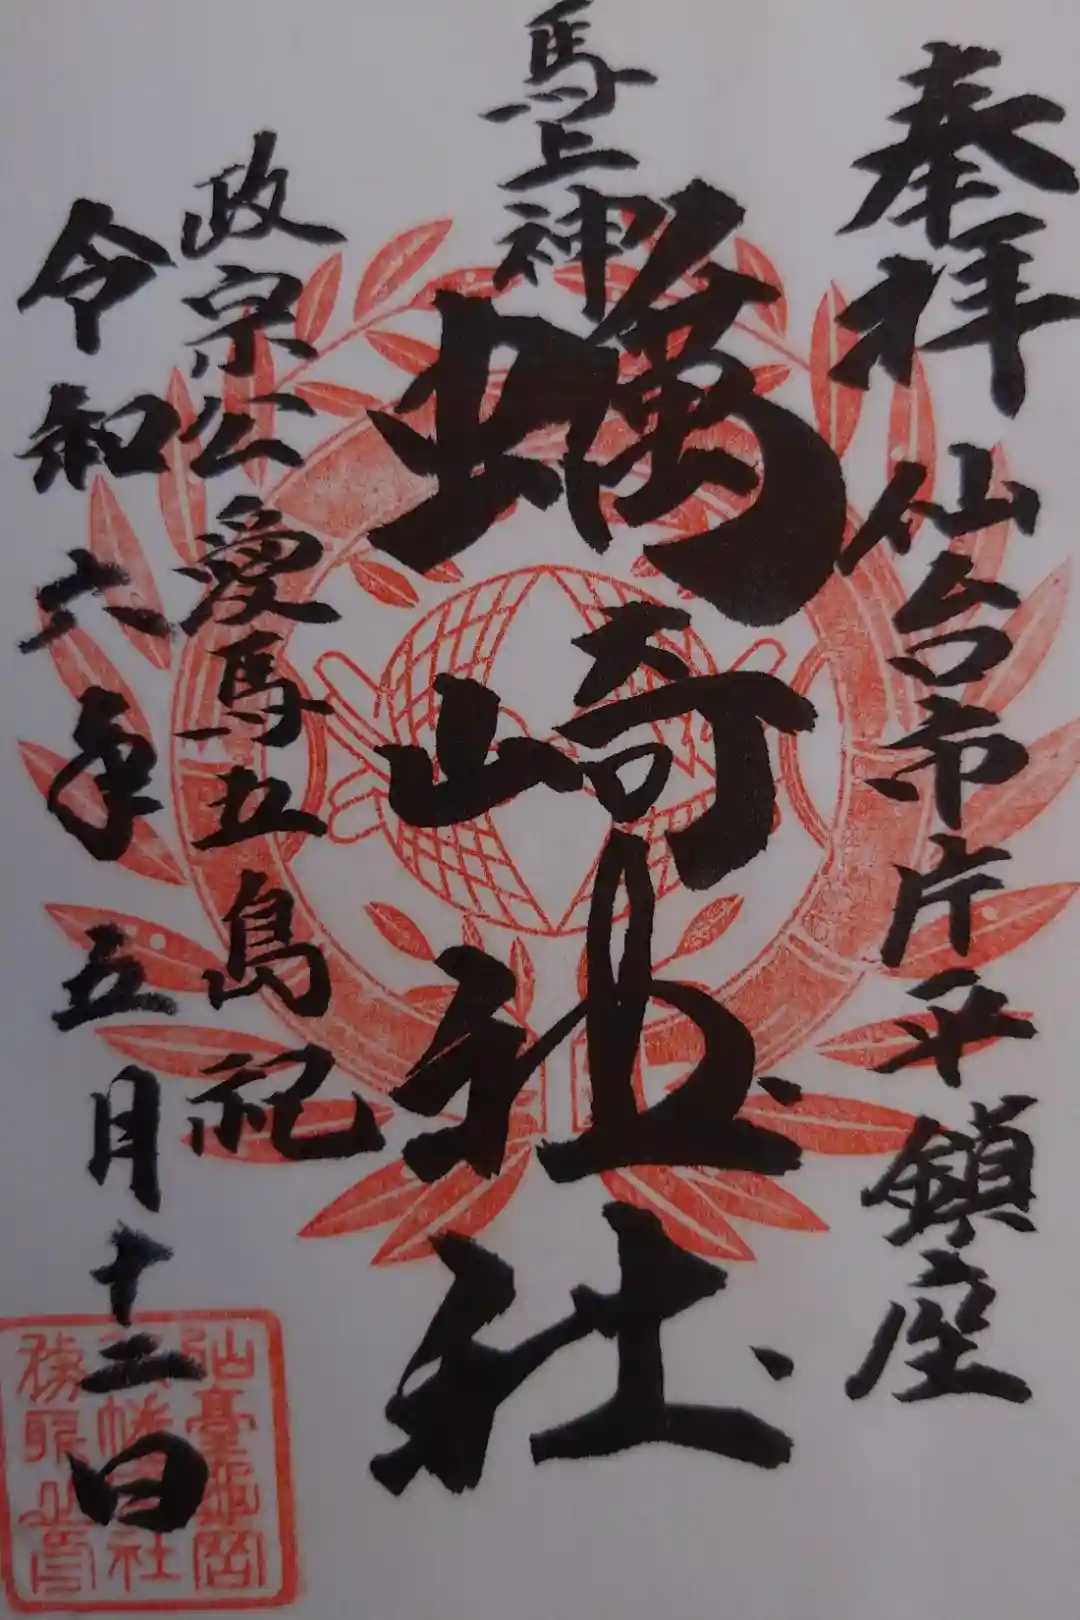 奉拝 仙台市片平鎮座
馬上神
蠣崎神社
政宗公愛馬五島祀
令和六年五月十二日
仙臺龜岡
八幡神社
務所之印